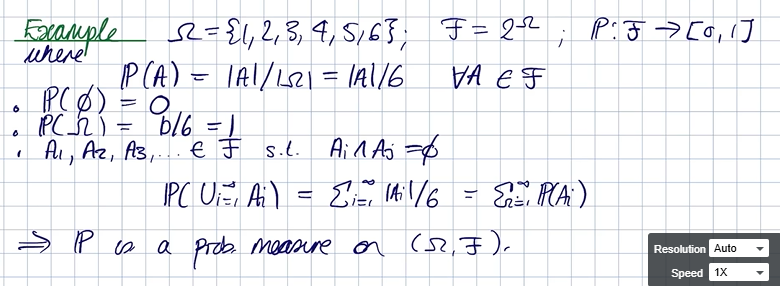 Example Ω = {1, 2, 3, 4, 5, 6}; F = 2^Ω ; P: F → [0, 1]
where
P(A) = |A|/|Ω| = |A|/6 ∀A ∈ F
• P(∅) = 0
• P(Ω) = 6/6 = 1
• A₁, A₂, A₃, ... ∈ F s.t. Ai ∩ Aj = ∅
P(∪_{i=1}^∞ Ai) = Σ_{i=1}^∞ |Ai|/6 = Σ_{i=1}^∞ P(Ai)
⇒ P is a prob. measure on (Ω, F).
Resolution Auto
Speed 1X